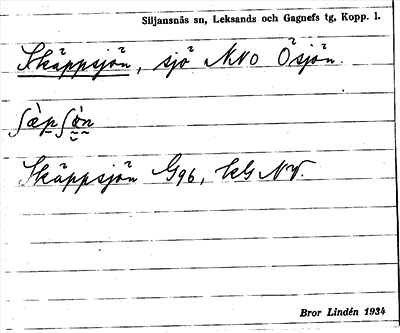 Siljansnäs sn, Leksands och Gagnefs tg, Kopp. l.
Skäppsjön, sjö NNO Ösjön.
ʃæ̀pʃø̀n
Skäppsjön G96, kG NV.
Bror Lindén 1934